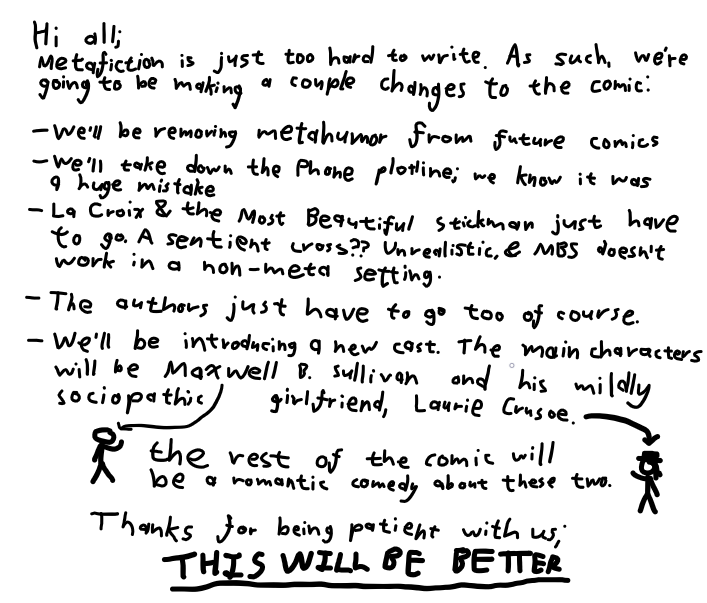 Hi all;
Metafiction is just too hard to write. As such, we're
going to be making a couple changes to the comic:
- We'll be removing metahumor from future comics
- We'll take down the Phone plotline; we know it was
a huge mistake
- La Croix & the Most Beautiful Stickman just have
to go. A sentient cross?? Unrealistic, & MBS doesn't
work in a non-meta setting.
- The authors just have to go too of course.
- We'll be introducing a new cast. The main characters
will be Maxwell B. Sullivan and his mildly
sociopathic girlfriend, Laurie Crusoe.
the rest of the comic will
be a romantic comedy about these two.
Thanks for being patient with us;
THIS WILL BE BETTER